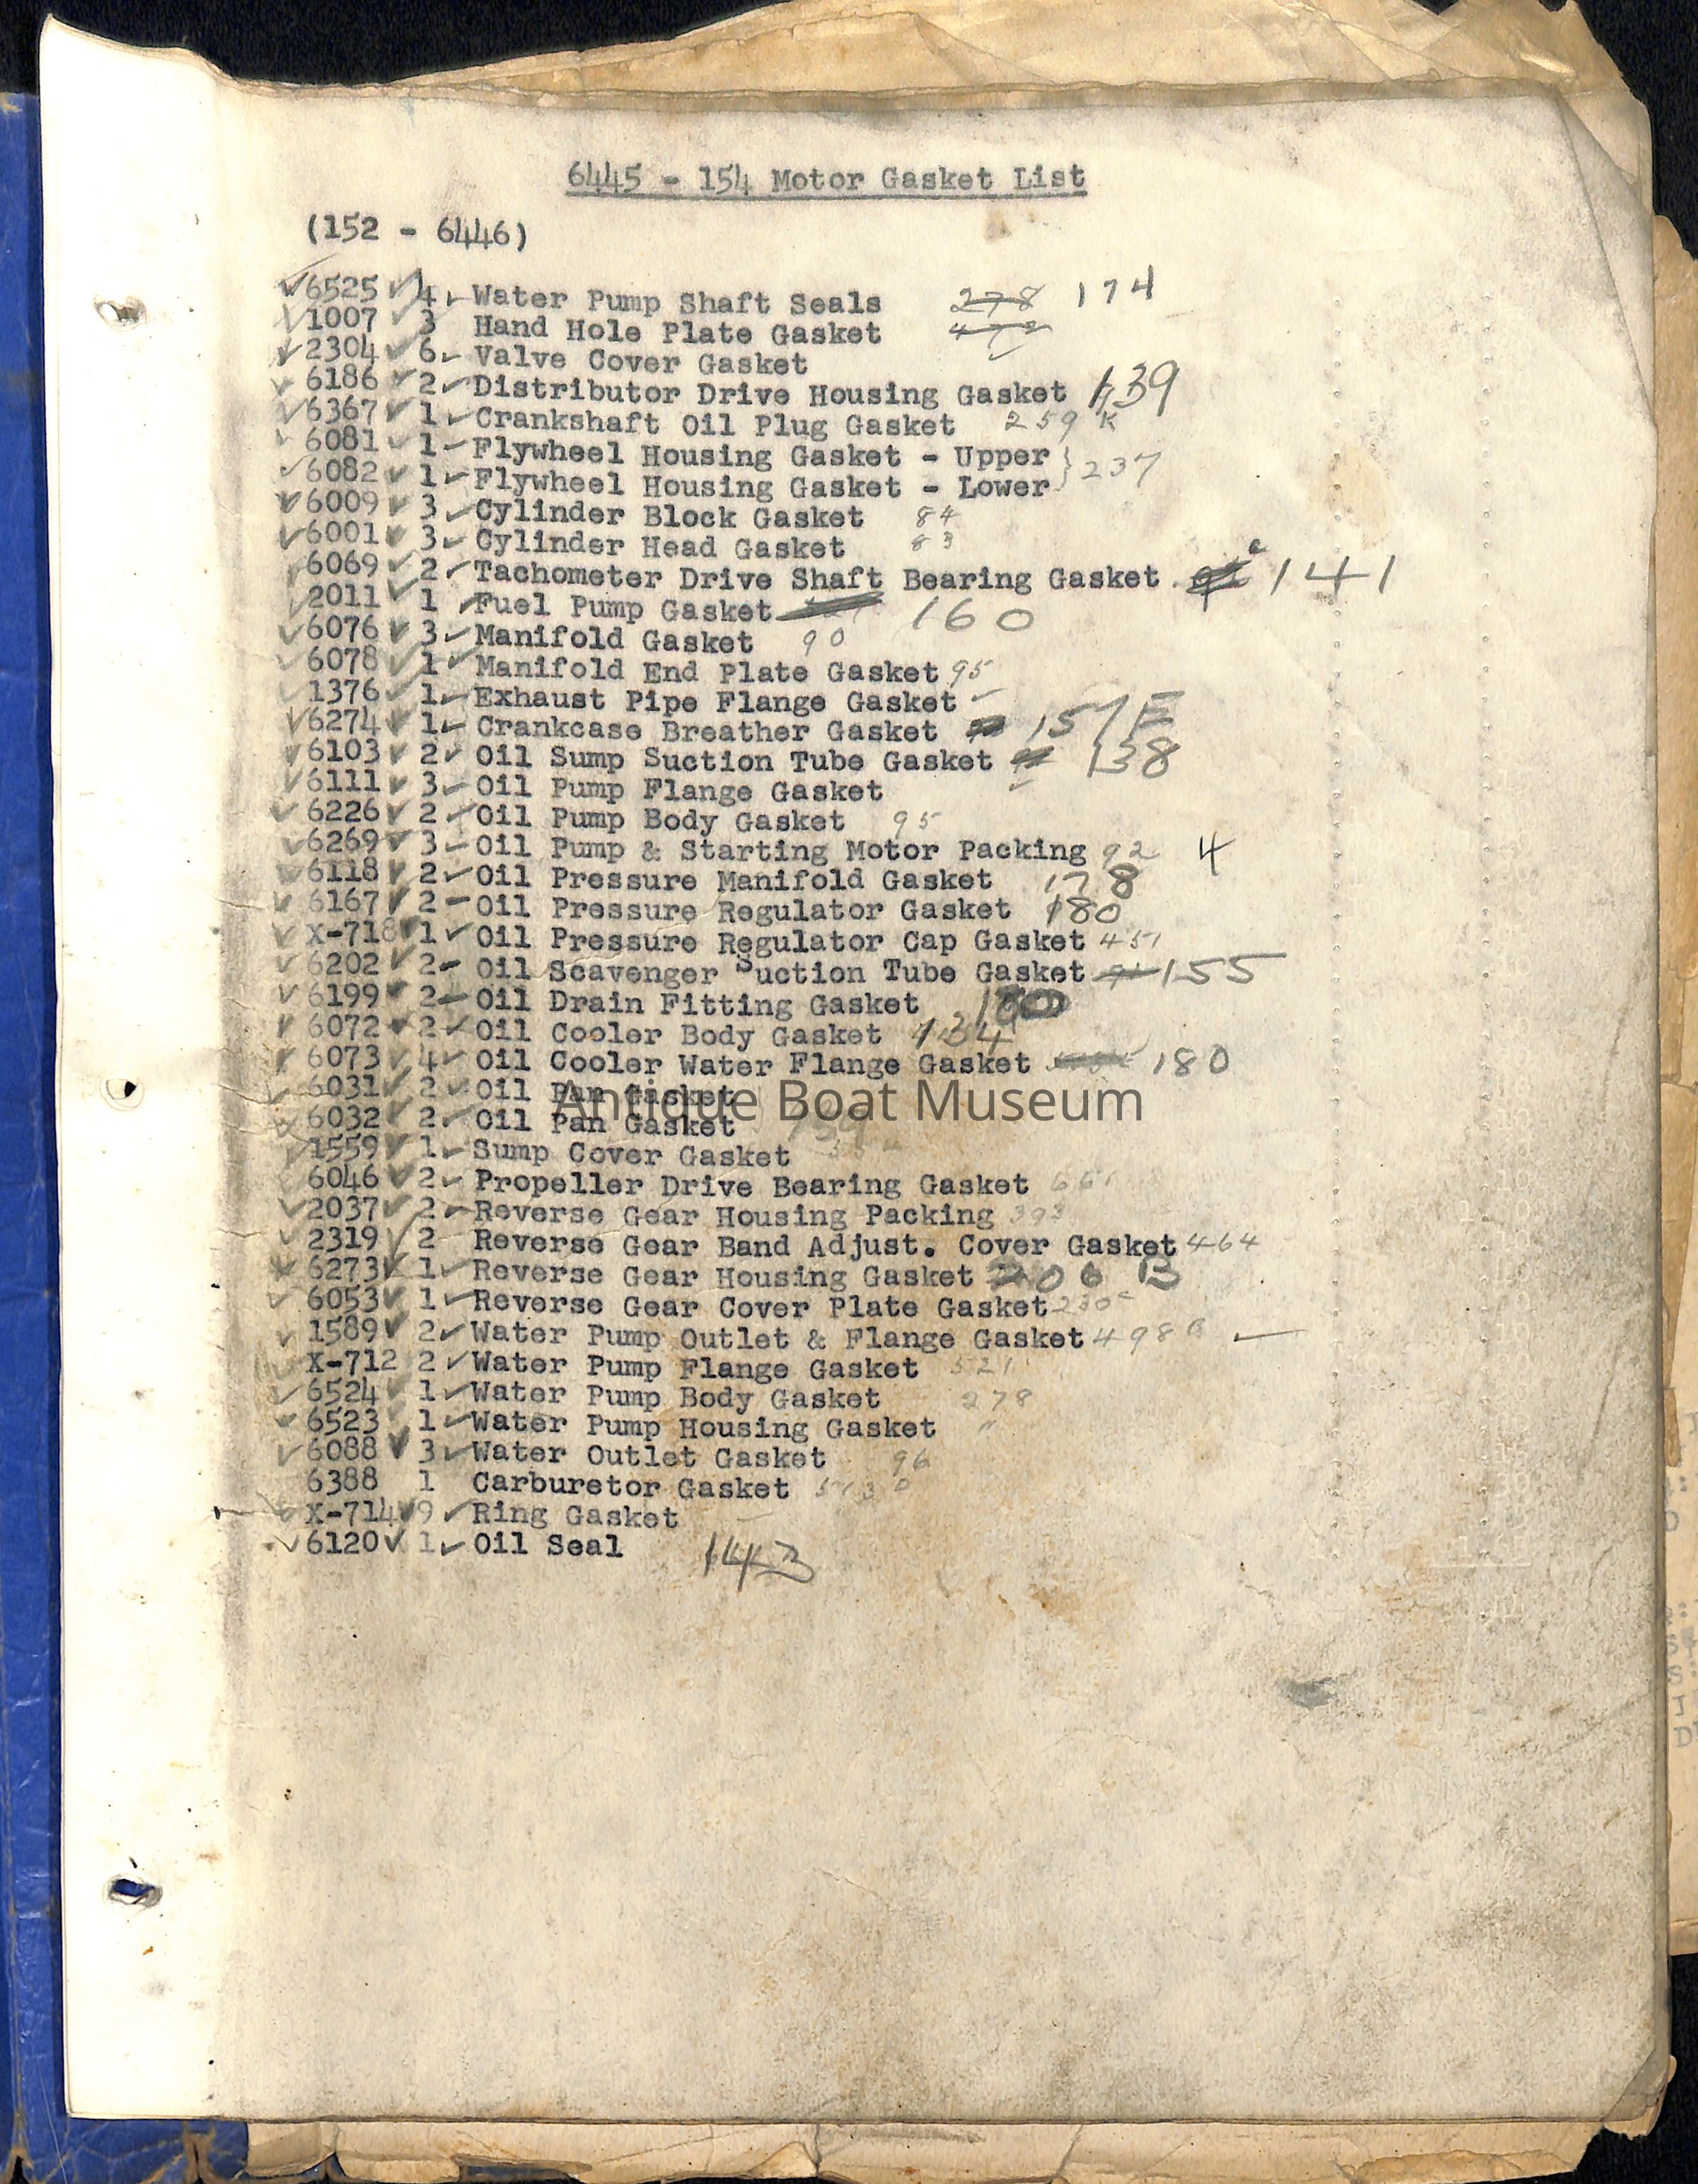 6445 - 154 Motor Gasket List
(152 - 6446)
✓6525 ✓ 4 ✓ Water Pump Shaft Seals 278 174
✓1007 ✓ 3 Hand Hole Plate Gasket
✓2304 ✓ 6 ✓ Valve Cover Gasket ✓
✓6186 ✓ 2 ✓ Distributor Drive Housing Gasket 139
✓6367 ✓ 1 ✓ Crankshaft Oil Plug Gasket 259 K
✓6081 ✓ 1 ✓ Flywheel Housing Gasket - Upper } 237
✓6082 ✓ 1 ✓ Flywheel Housing Gasket - Lower
✓6009 ✓ 3 ✓ Cylinder Block Gasket 84
✓6001 ✓ 3 ✓ Cylinder Head Gasket 83
✓6069 ✓ 2 ✓ Tachometer Drive Shaft Bearing Gasket 141
✓2011 ✓ 1 ✓ Fuel Pump Gasket 160
✓6076 ✓ 3 ✓ Manifold Gasket 90
✓6078 ✓ 1 ✓ Manifold End Plate Gasket 95
✓1376 ✓ 1 ✓ Exhaust Pipe Flange Gasket ✓
✓6274 ✓ 1 ✓ Crankcase Breather Gasket 157 E
✓6103 ✓ 2 ✓ Oil Sump Suction Tube Gasket 138
✓6111 ✓ 3 ✓ Oil Pump Flange Gasket ✓
✓6226 ✓ 2 ✓ Oil Pump Body Gasket 95
✓6269 ✓ 3 ✓ Oil Pump & Starting Motor Packing 92 4
✓6118 ✓ 2 ✓ Oil Pressure Manifold Gasket 178
✓6167 ✓ 2 - Oil Pressure Regulator Gasket 180
✓X-718 ✓ 1 ✓ Oil Pressure Regulator Cap Gasket 451
✓6202 ✓ 2 - Oil Scavenger Suction Tube Gasket 155
✓6199 ✓ 2 ✓ Oil Drain Fitting Gasket 180
✓6072 ✓ 2 ✓ Oil Cooler Body Gasket 134
✓6073 ✓ 4 ✓ Oil Cooler Water Flange Gasket 180
✓6031 ✓ 2 ✓ Oil Pan Gasket
Antique Boat Museum
✓6032 ✓ 2 ✓ Oil Pan Gasket
✓1559 ✓ 1 ✓ Sump Cover Gasket
6046 ✓ 2 ✓ Propeller Drive Bearing Gasket 661
✓2037 ✓ 2 ✓ Reverse Gear Housing Packing 393
✓2319 ✓ 2 Reverse Gear Band Adjust. Cover Gasket 464
✓6273 ✓ 1 ✓ Reverse Gear Housing Gasket 206 B
✓6053 ✓ 1 ✓ Reverse Gear Cover Plate Gasket
✓1589 ✓ 2 ✓ Water Pump Outlet & Flange Gasket 498 B —
X-712 2 ✓ Water Pump Flange Gasket 521
✓6524 ✓ 1 ✓ Water Pump Body Gasket 278
✓6523 ✓ 1 ✓ Water Pump Housing Gasket "
✓6088 ✓ 3 ✓ Water Outlet Gasket 96
6388 1 Carburetor Gasket
X-714 ✓ 9 ✓ Ring Gasket
✓6120 ✓ 1 ✓ Oil Seal 143